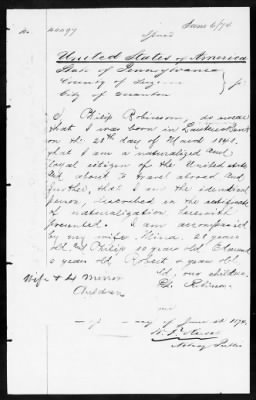 No 40097 June 6/74
Issued
United States of America
State of Pennsylvania
County of Luzerne ss
City of Scranton
I Philip Robinson, do swear
that I was born in
on the 28th day of March 1841
that I am a naturalized and
loyal citizen of the United States
and about to travel abroad and
further, that I am the identical
person, described in the certificate
of naturalization herewith
presented. I am accompanied
by my wife Mina 28 years
old and Philip 10 years old Edmund
6 years old Robert 4 years old
old, our children.
Wife & 4 Minor
Children
Ph. Robinson
day of June 1874
Notary Public